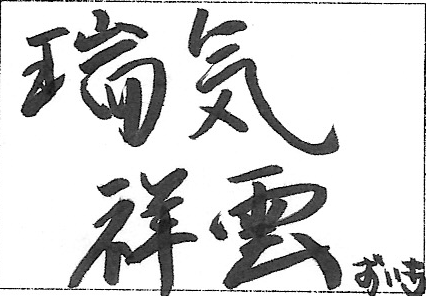 瑞気
祥雲
ずいき